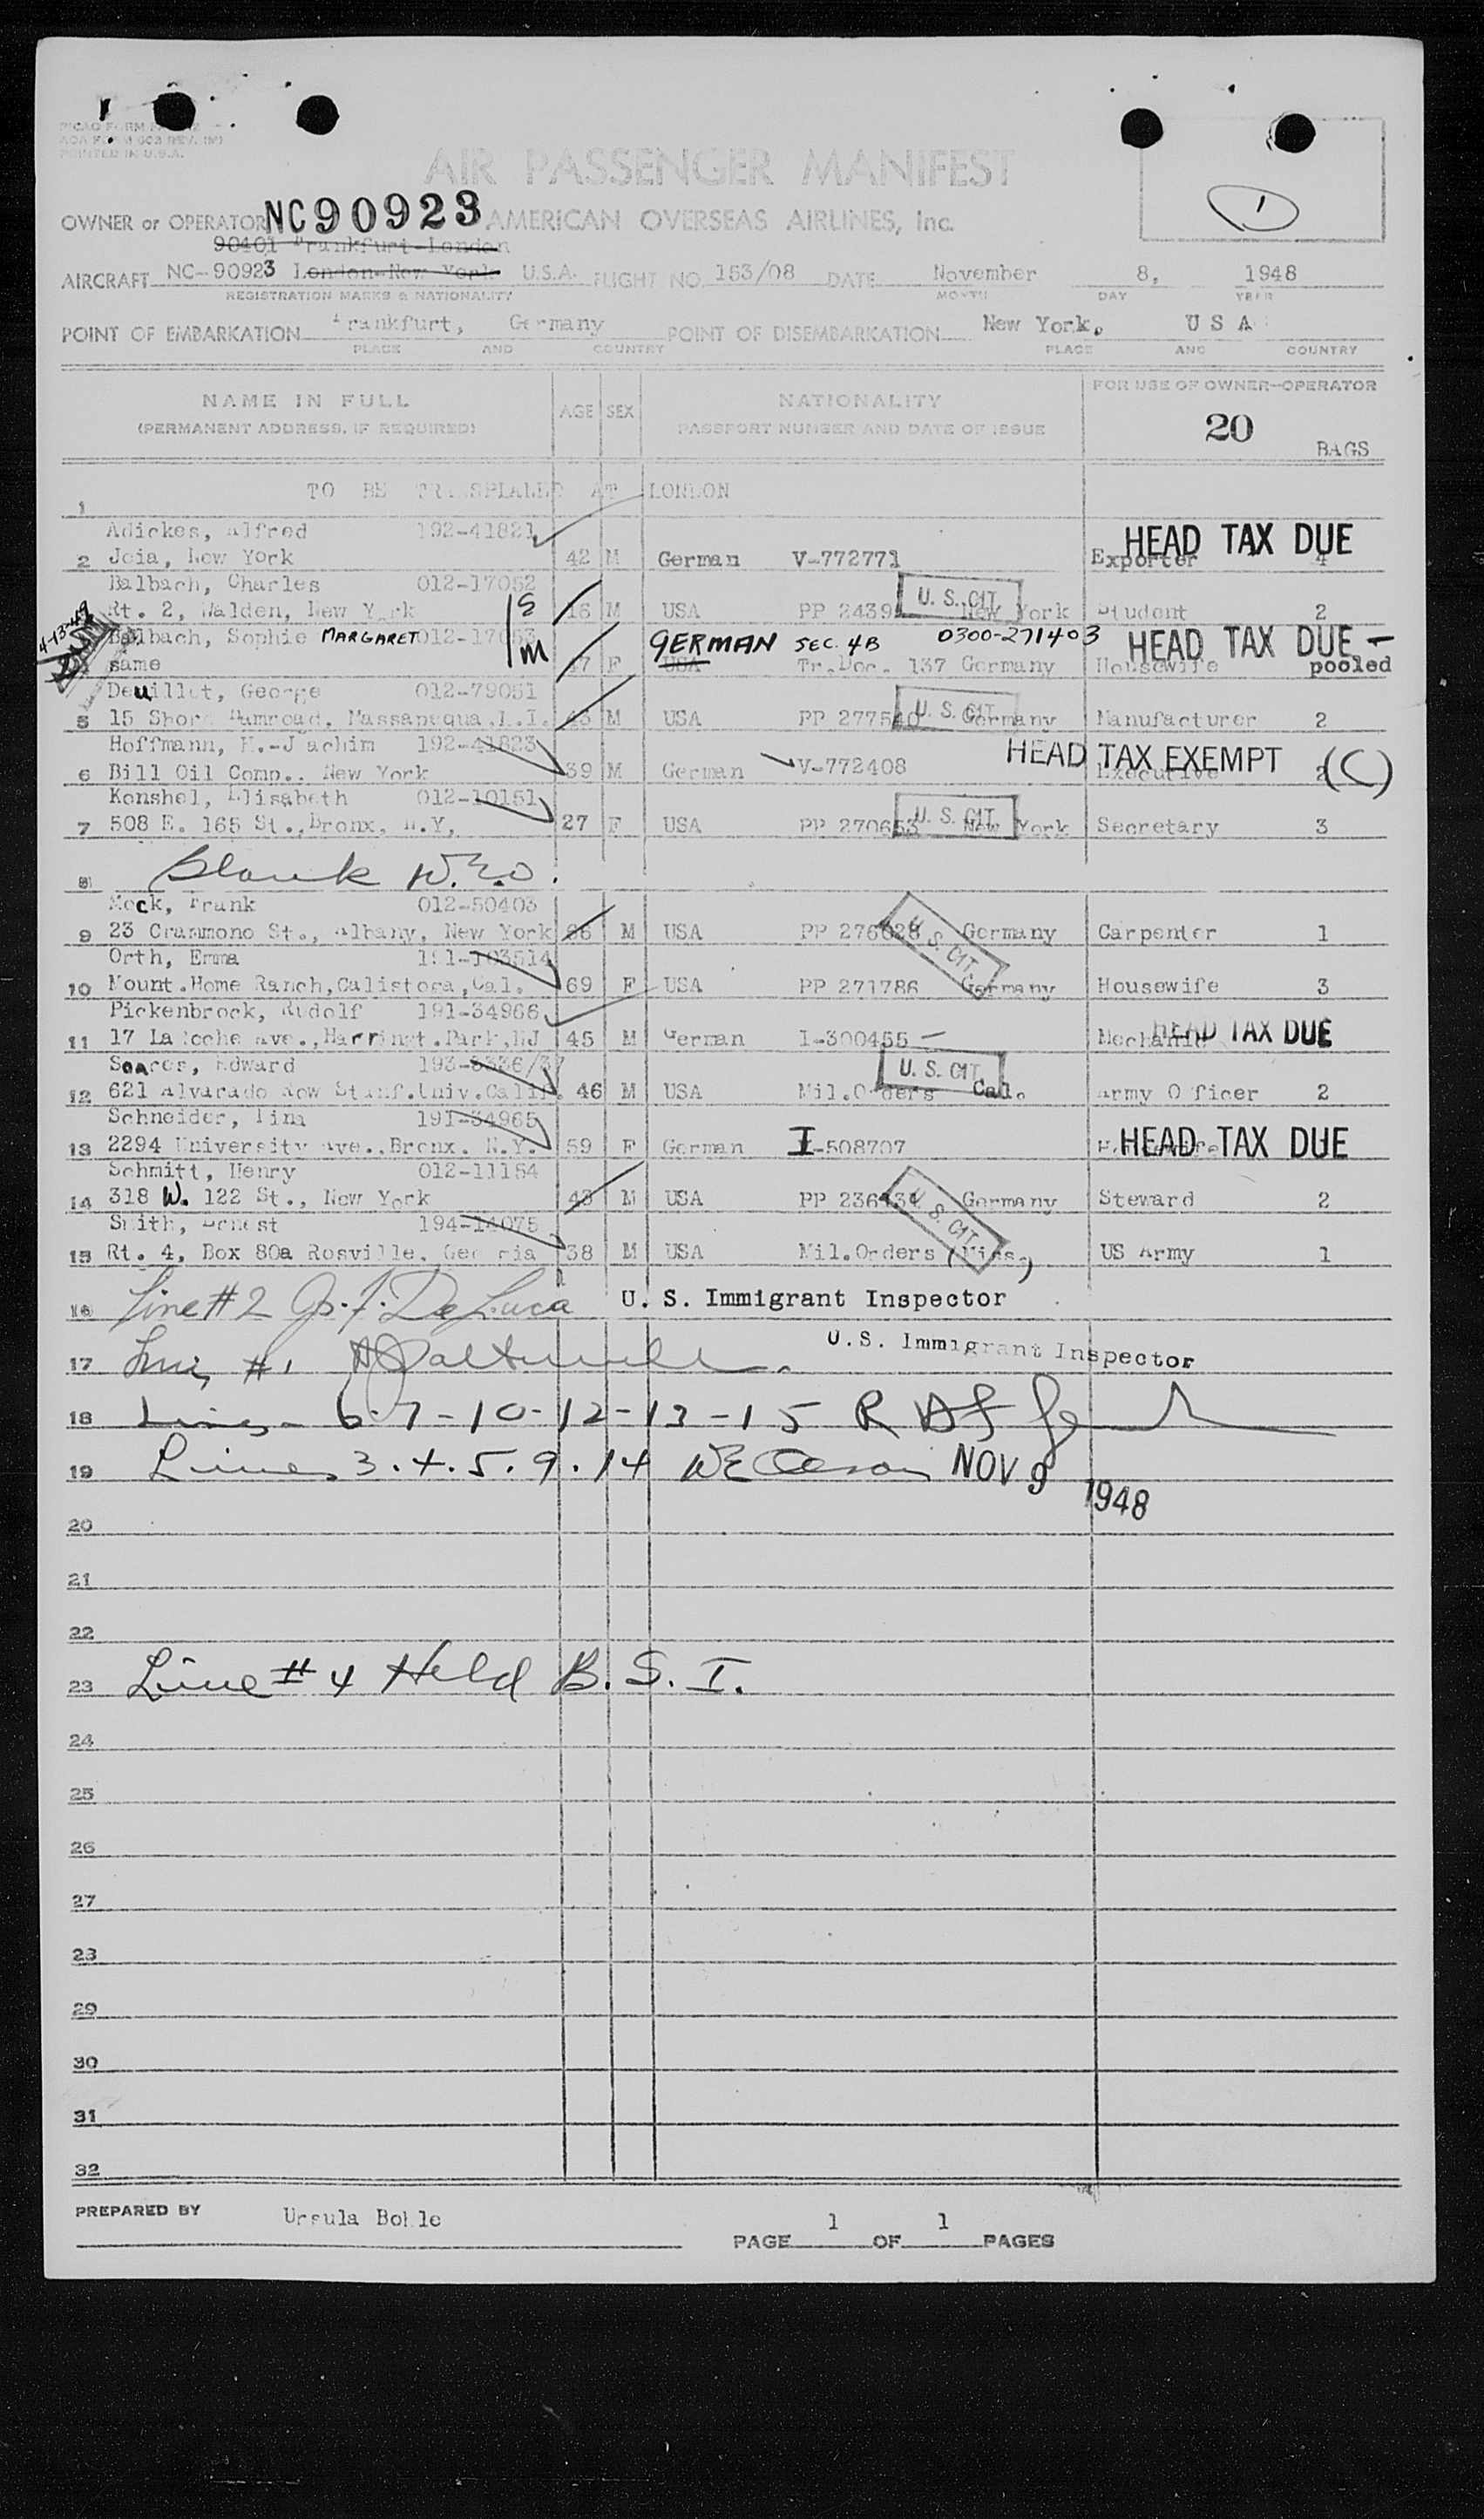 PRINTED IN U.S.A.
AIR PASSENGER MANIFEST
1
OWNER or OPERATOR NC90923 AMERICAN OVERSEAS AIRLINES, Inc.
90401 Frankfurt-London
AIRCRAFT NC-90923 London-New York U.S.A. FLIGHT NO. 153/08 DATE November 8, 1948
REGISTRATION MARKS & NATIONALITY MONTH DAY YEAR
POINT OF EMBARKATION Frankfurt, Germany POINT OF DISEMBARKATION New York, U S A
PLACE AND COUNTRY PLACE AND COUNTRY
NAME IN FULL AGE SEX NATIONALITY FOR USE OF OWNER-OPERATOR
(PERMANENT ADDRESS, IF REQUIRED) PASSPORT NUMBER AND DATE OF ISSUE 20 BAGS
1 TO BE TRANSPLANED AT LONDON
Adickes, Alfred 192-41821 HEAD TAX DUE
2 Joia, New York 42 M German V-772771 Exporter 4
Balbach, Charles 012-17052 U. S. CIT.
Rt. 2, Walden, New York 16 M USA PP 2439 New York Student 2
4-13-49 Balbach, Sophie MARGARET 012-17053 GERMAN SEC. 4B 0300-271403 HEAD TAX DUE -
same 47 F USA Tr.Doc. 137 Germany Housewife pooled
Deuillet, George 012-79051 U. S. CIT.
5 15 Shore Damroad, Massapequa.L.I. 43 M USA PP 277540 Germany Manufacturer 2
Hoffmann, H.-Joachim 192-41823 HEAD TAX EXEMPT (C)
6 Bill Oil Comp., New York 39 M German V-772408 Executive 2
Konshel, Elisabeth 012-10151 U. S. CIT.
7 508 E. 165 St., Bronx, N.Y, 27 F USA PP 270653 New York Secretary 3
8 Blank W.E.O.
Mock, Frank 012-50403 U. S. CIT.
9 23 Crammono St., Albany, New York 56 M USA PP 276628 Germany Carpenter 1
Orth, Emma 191-103514
10 Mount.Home Ranch, Calistoga, Cal. 69 F USA PP 271786 Germany Housewife 3
Pickenbrock, Rudolf 191-34966 HEAD TAX DUE
11 17 LaRoche Ave., Harringt.Park, NJ 45 M German I-300455 Mechanic
Soares, Edward 193-5336/37 U. S. CIT.
12 621 Alvarado Row Stanf.Univ.Calif. 46 M USA Mil.Orders Cal. Army Officer 2
Schneider, Tina 191-34965 HEAD TAX DUE
13 2294 University Ave., Bronx. N.Y. 59 F German I-508707
Schmitt, Henry 012-11154 U. S. CIT.
14 318 W. 122 St., New York 43 M USA PP 236434 Germany Steward 2
Smith, Ernest 194-14075
15 Rt. 4, Box 80a Rosville, Georgia 38 M USA Mil.Orders (Miss.) US Army 1
16 Line #2 Jos. F. DeLuca U. S. Immigrant Inspector
17 Line #1 U.S. Immigrant Inspector
18 Lines - 6-7-10-12-13-15
19 Lines 3.4.5.9.14 NOV 9 1948
20
21
22
23 Line #4 Held B.S.I.
24
25
26
27
23
29
30
31
32
PREPARED BY Ursula Bohle
PAGE 1 OF 1 PAGES